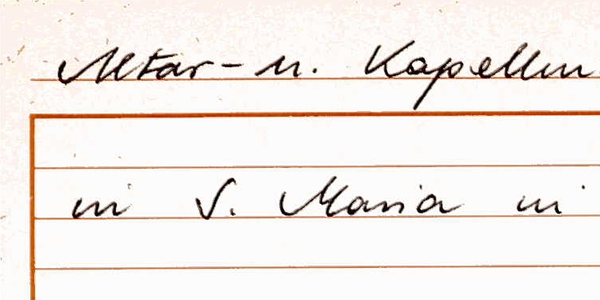 Altar- u. Kapellen
in S. Maria in